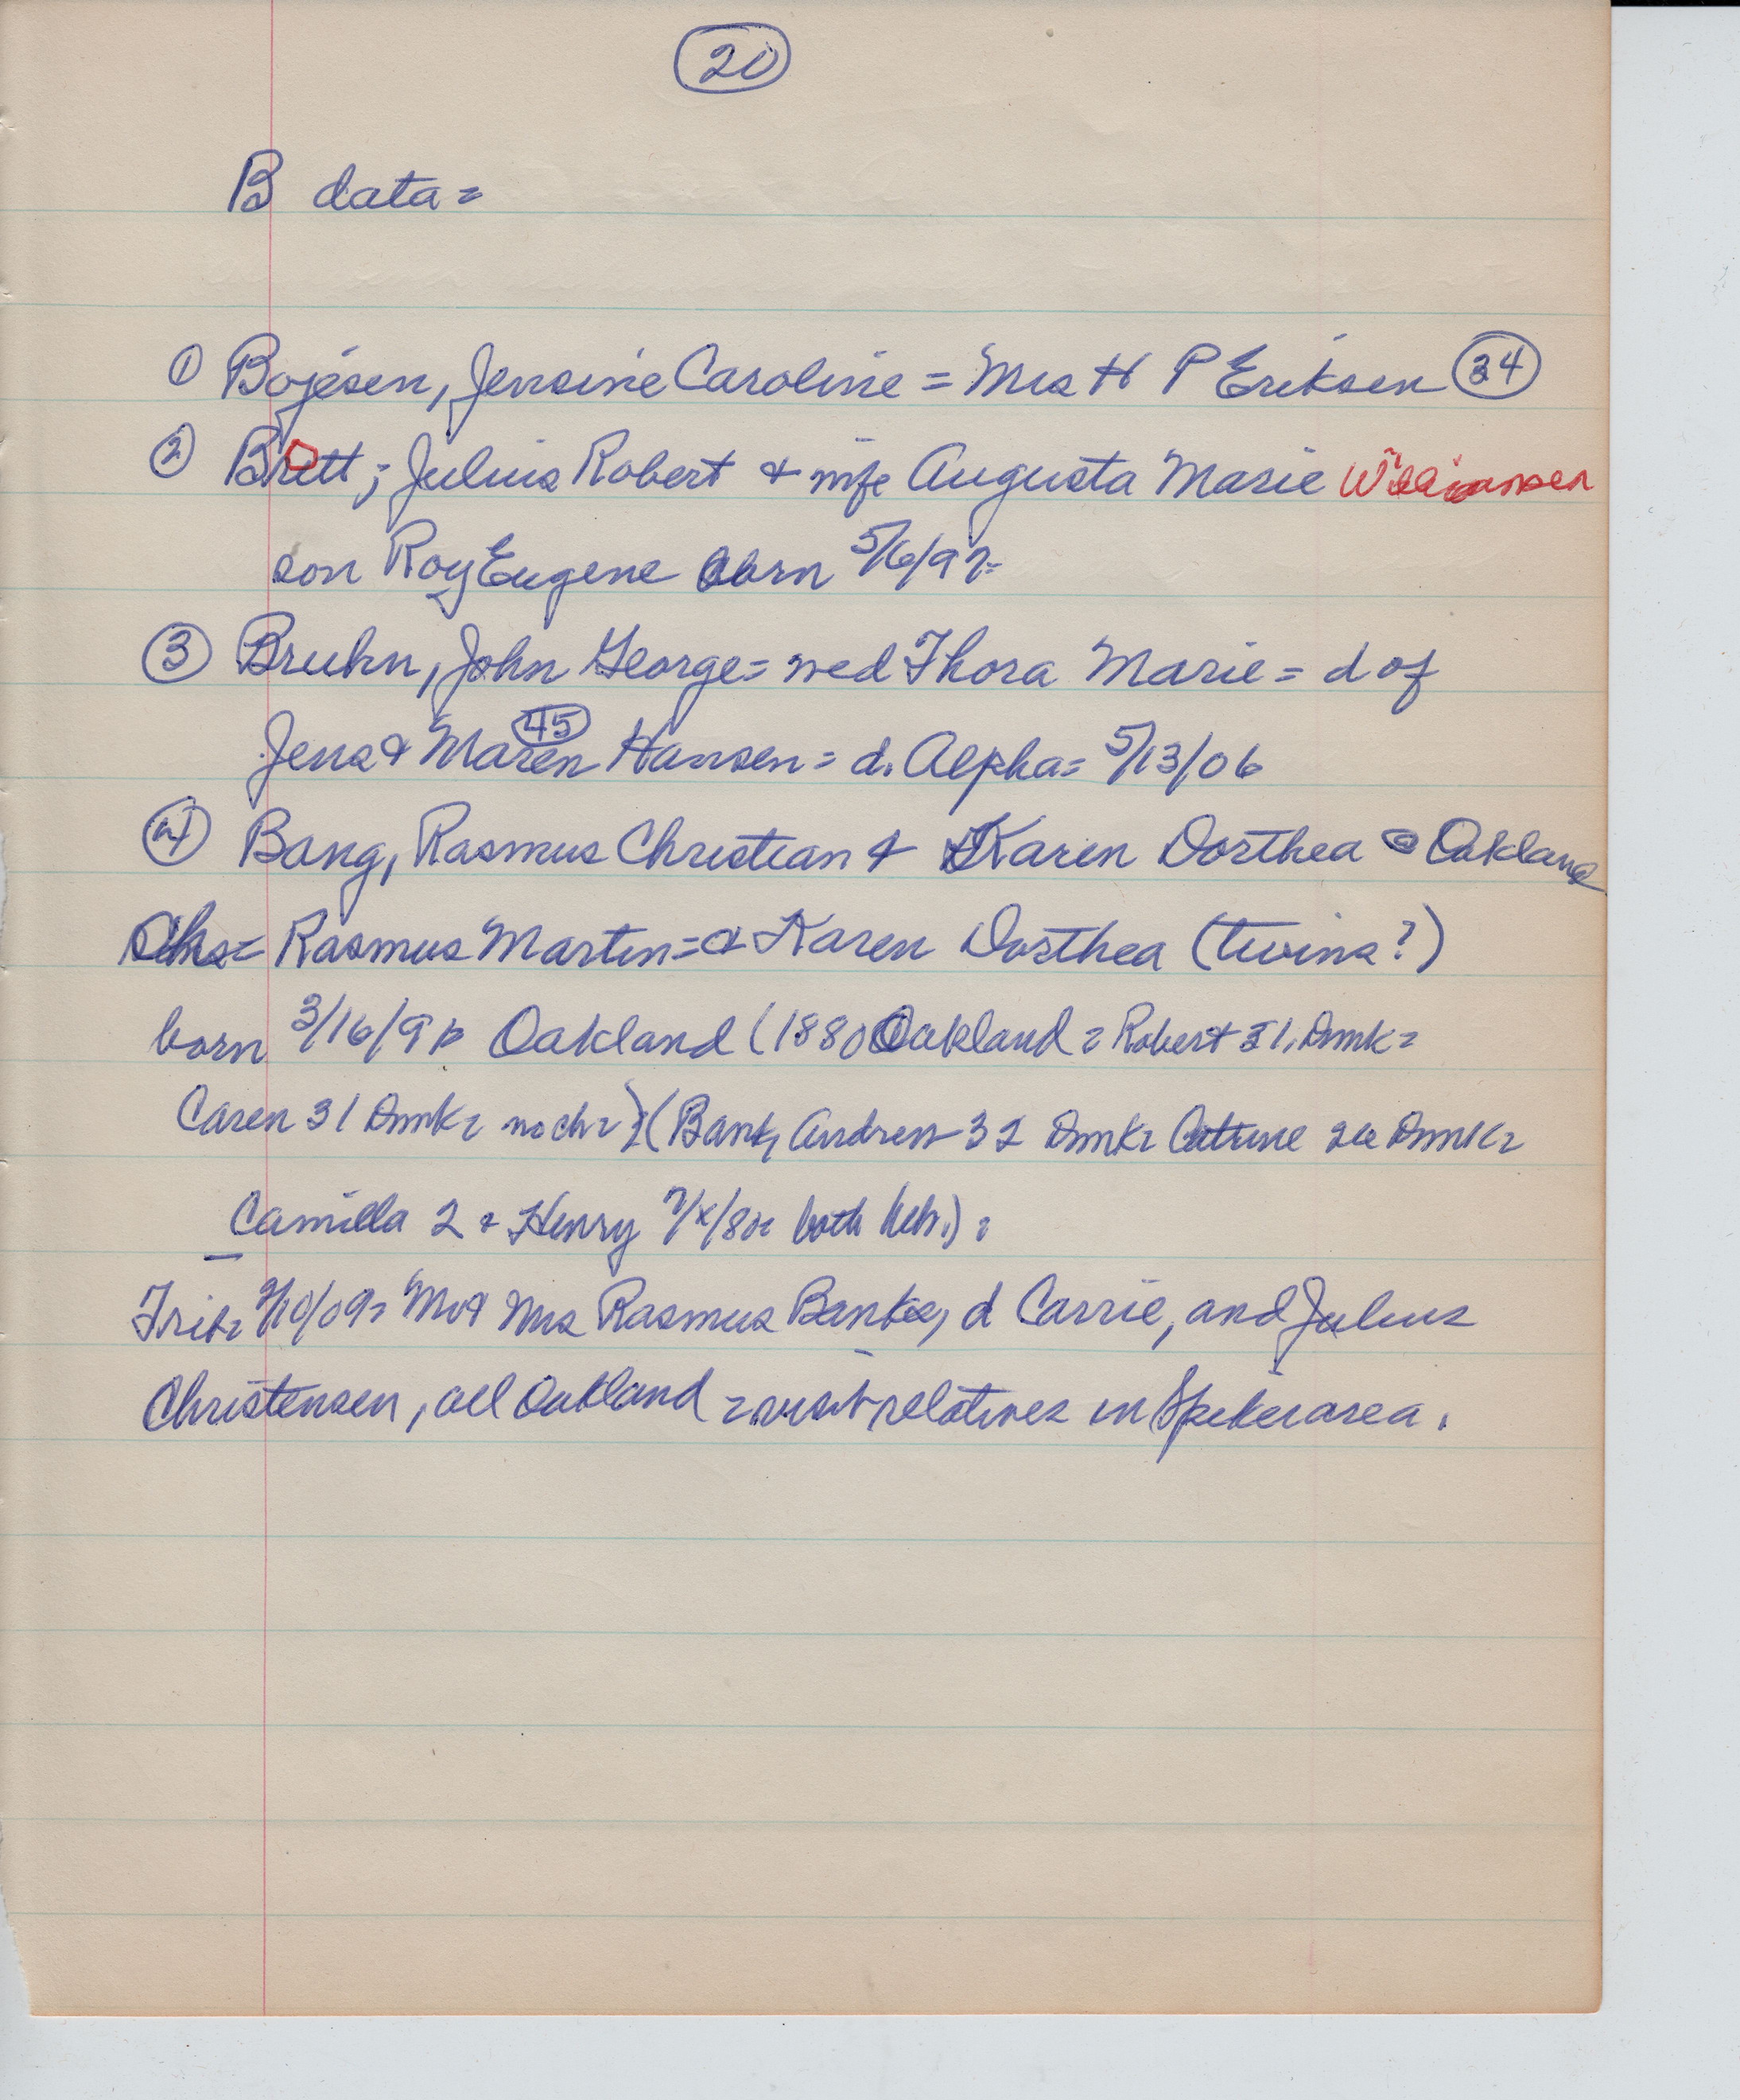 20
B data =
① Bojesen, Jensine Caroline = Mrs H P Eriksen 34
② Britt; Julius Robert & wife Augusta Marie Williamsen
son Roy Eugene born 5/6/97=
③ Bruhn, John George = wed Thora Marie = d of
45
Jens & Maren Hansen = d. Alpha = 5/13/06
④ Bang, Rasmus Christian & Karen Dorthea = Oakland
Rasmus Martin = & Karen Dorthea (twins?)
born 3/16/9 Oakland (1880 Oakland = Robert 31, Dmk =
Caren 31 Dmk = no ch =) (Bank, Andrew 32 Dmk = Catrine 26 Dmk =
Camilla 2 & Henry /80 = both Neb.) =
Trib = /10/09 = Mr & Mrs Rasmus Banks, d Carrie, and Julius
Christensen, all Oakland = visit relatives in Spiker area.